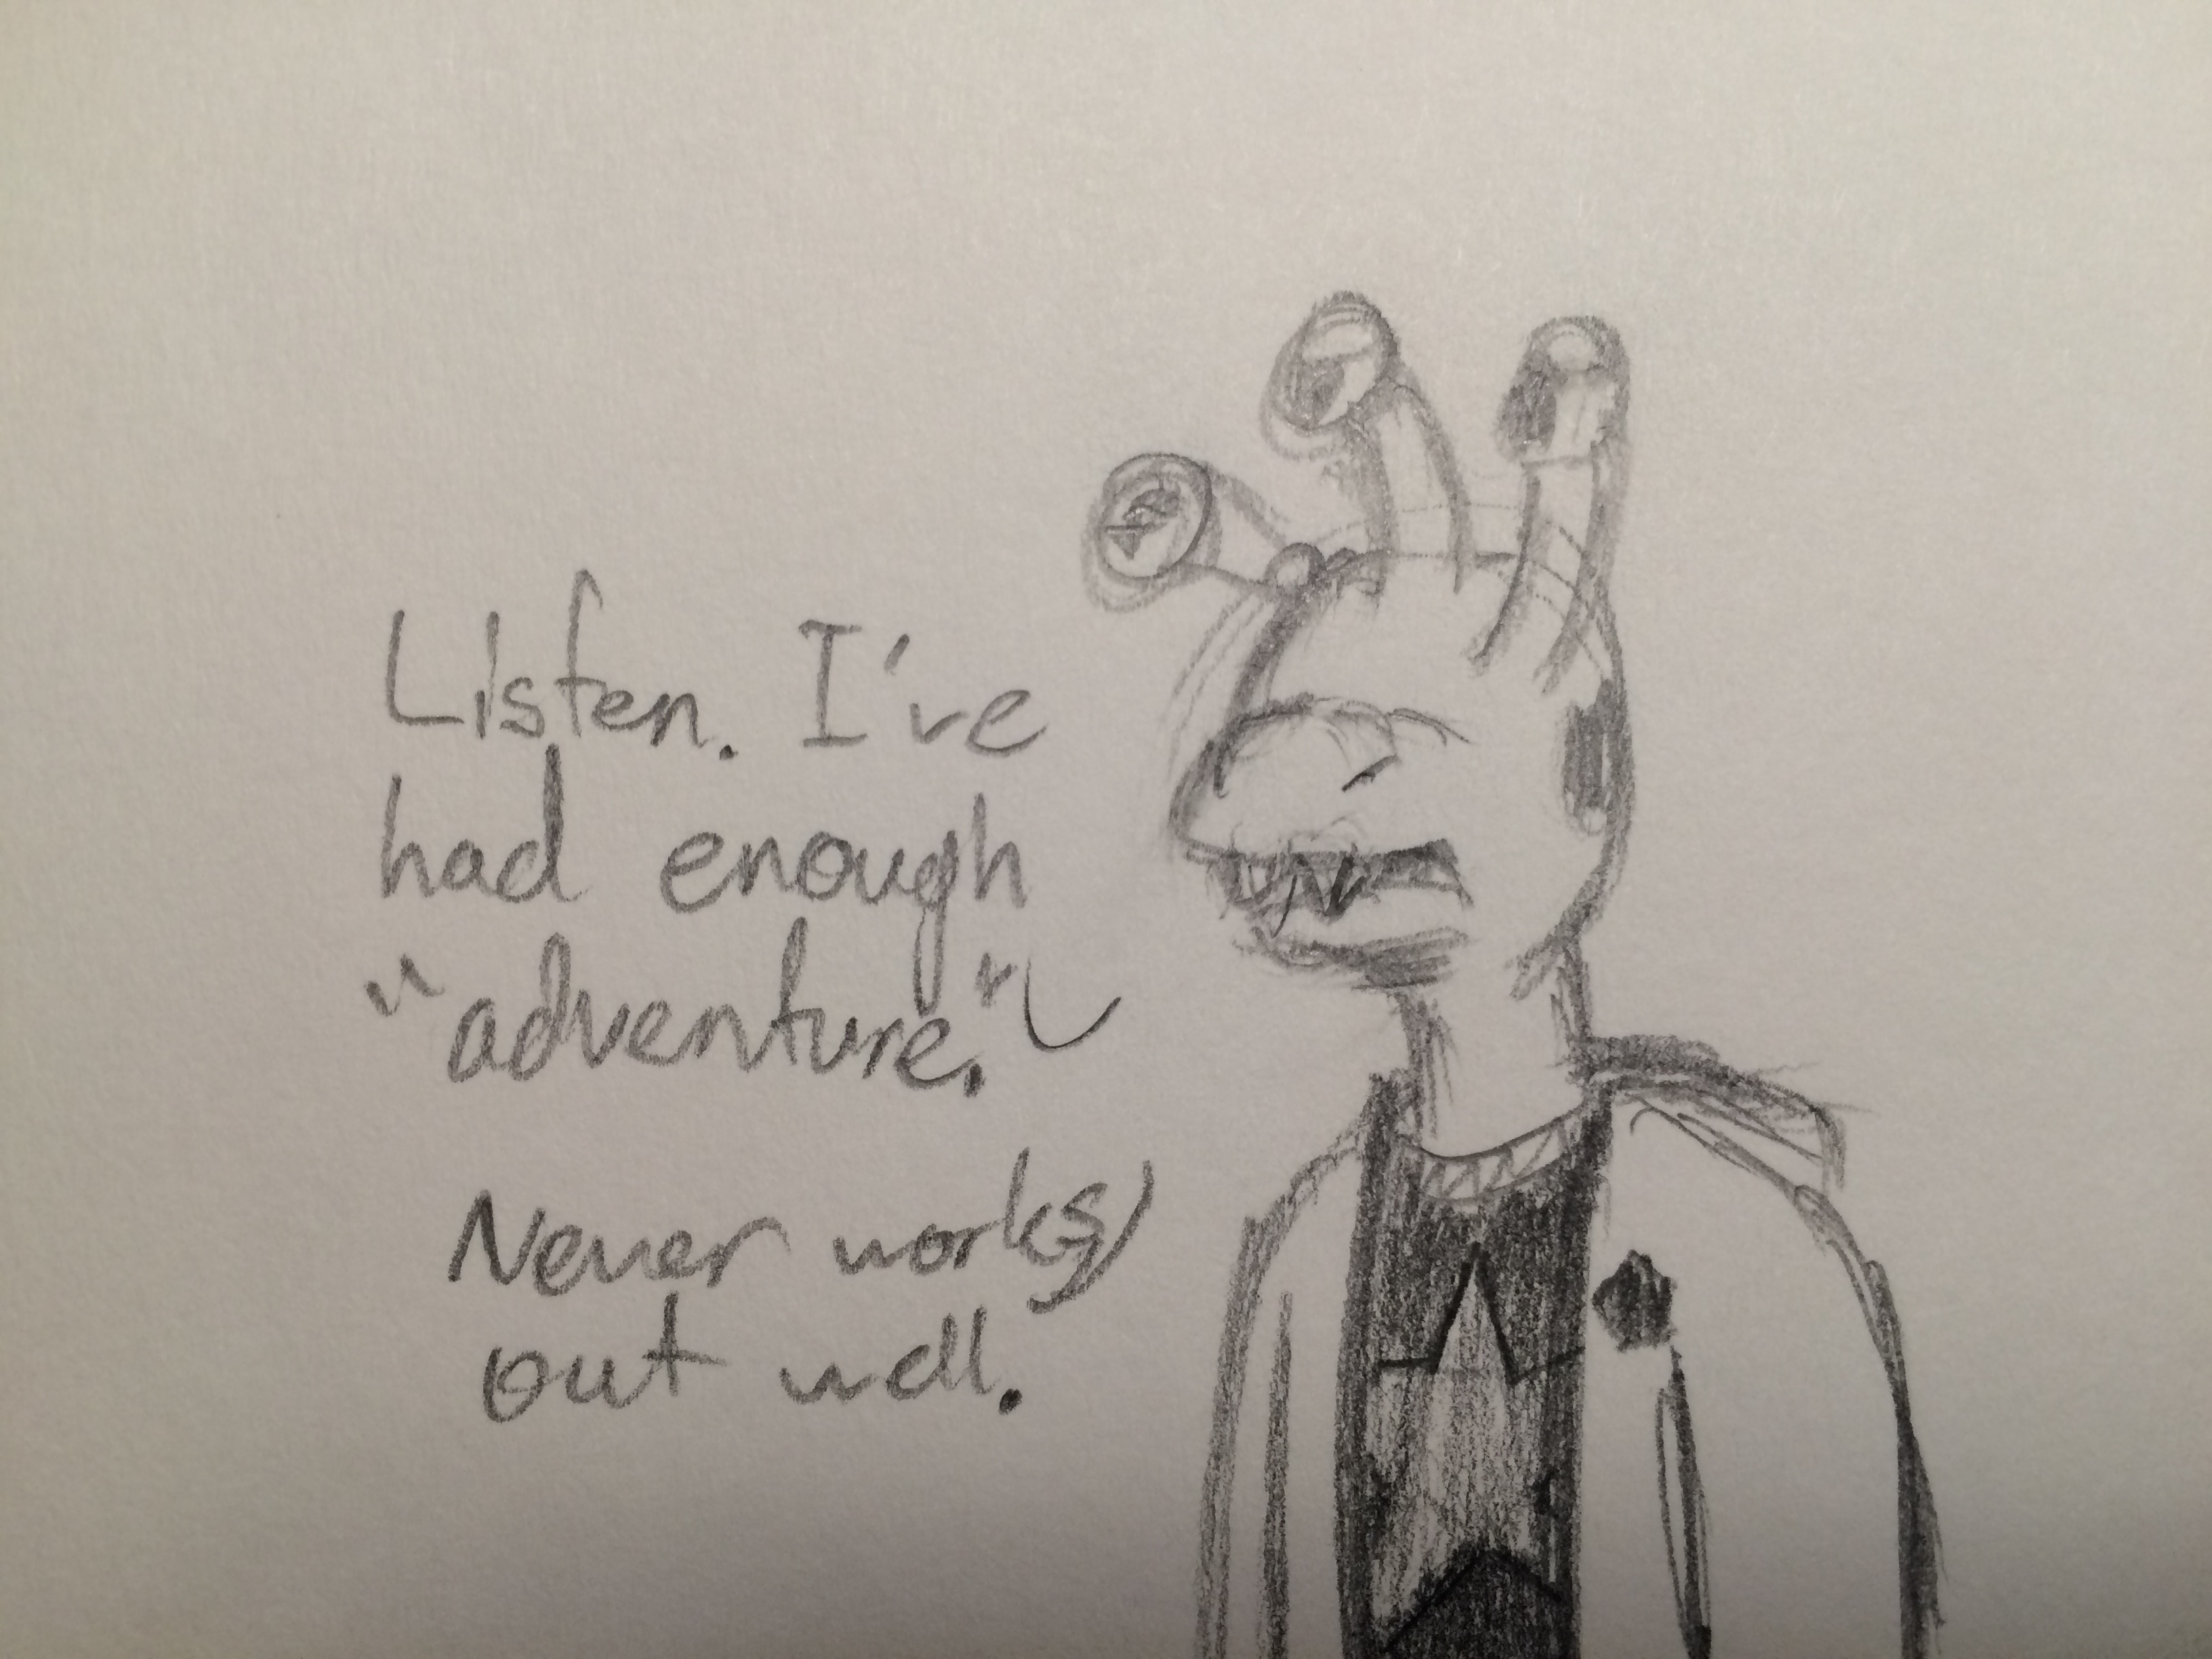 Listen. I've
had enough
"adventure."
Never works
out well.